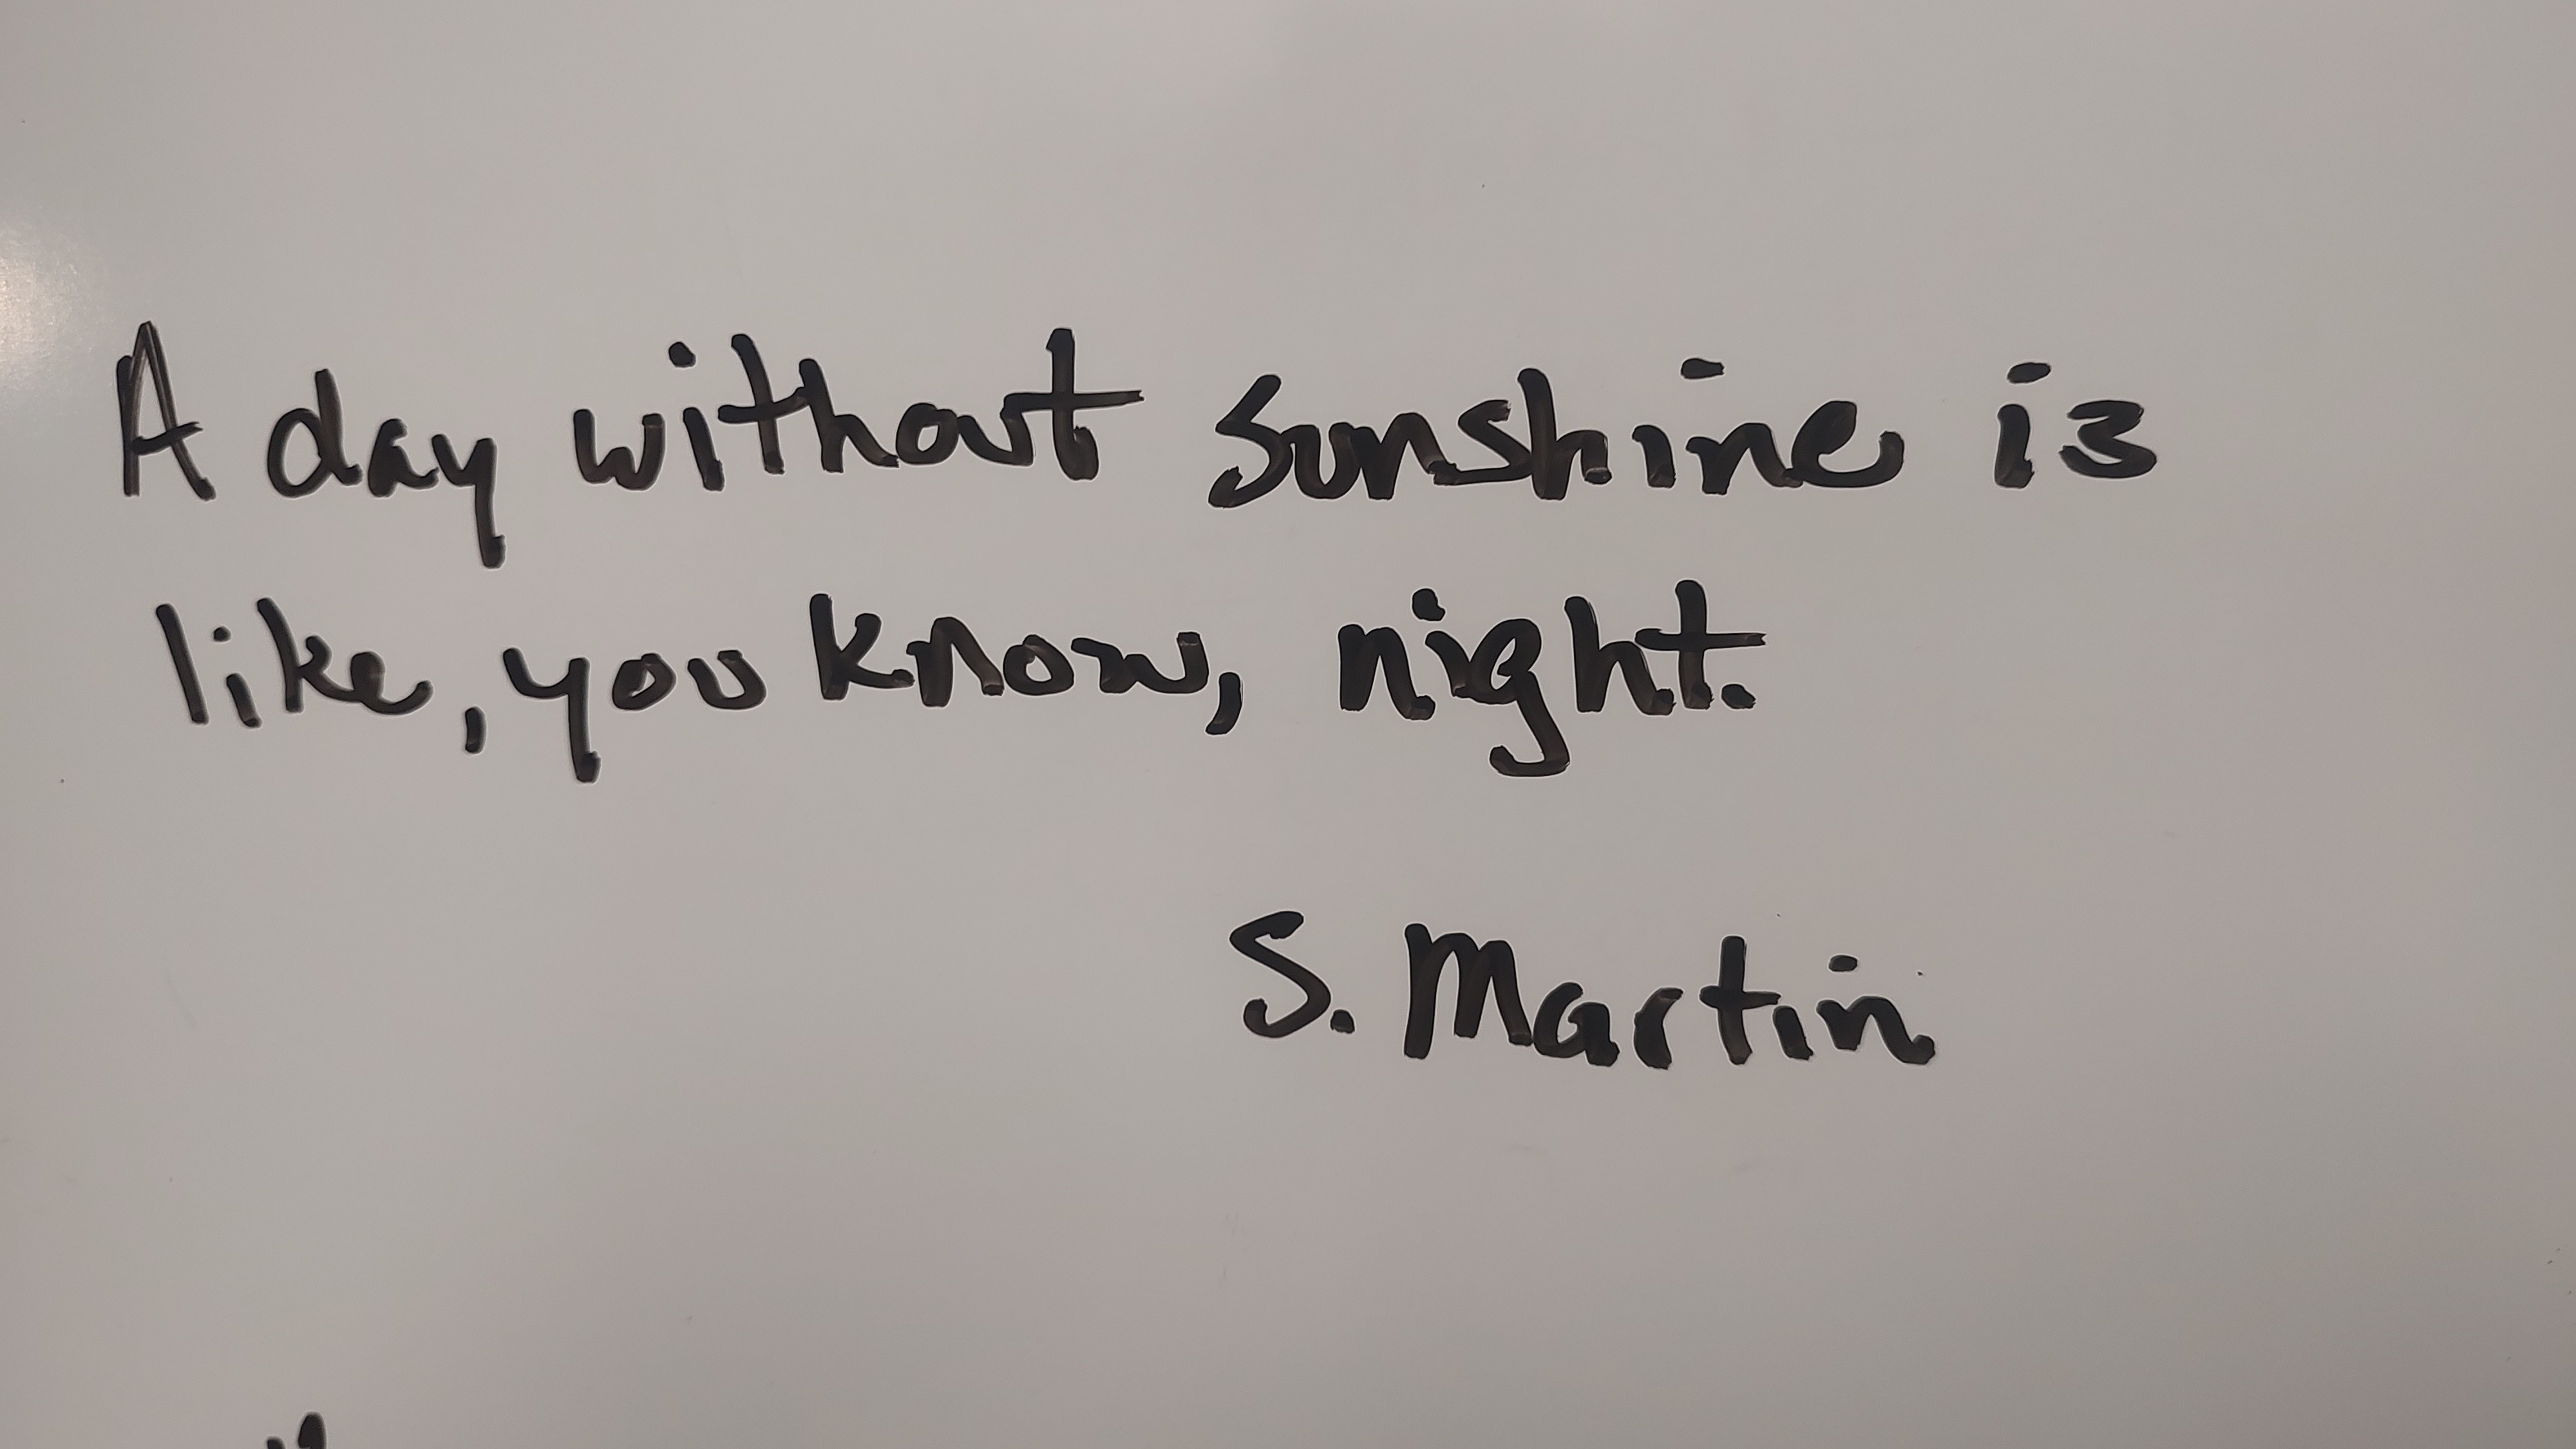 A day without sunshine is
like, you know, night.
S. Martin